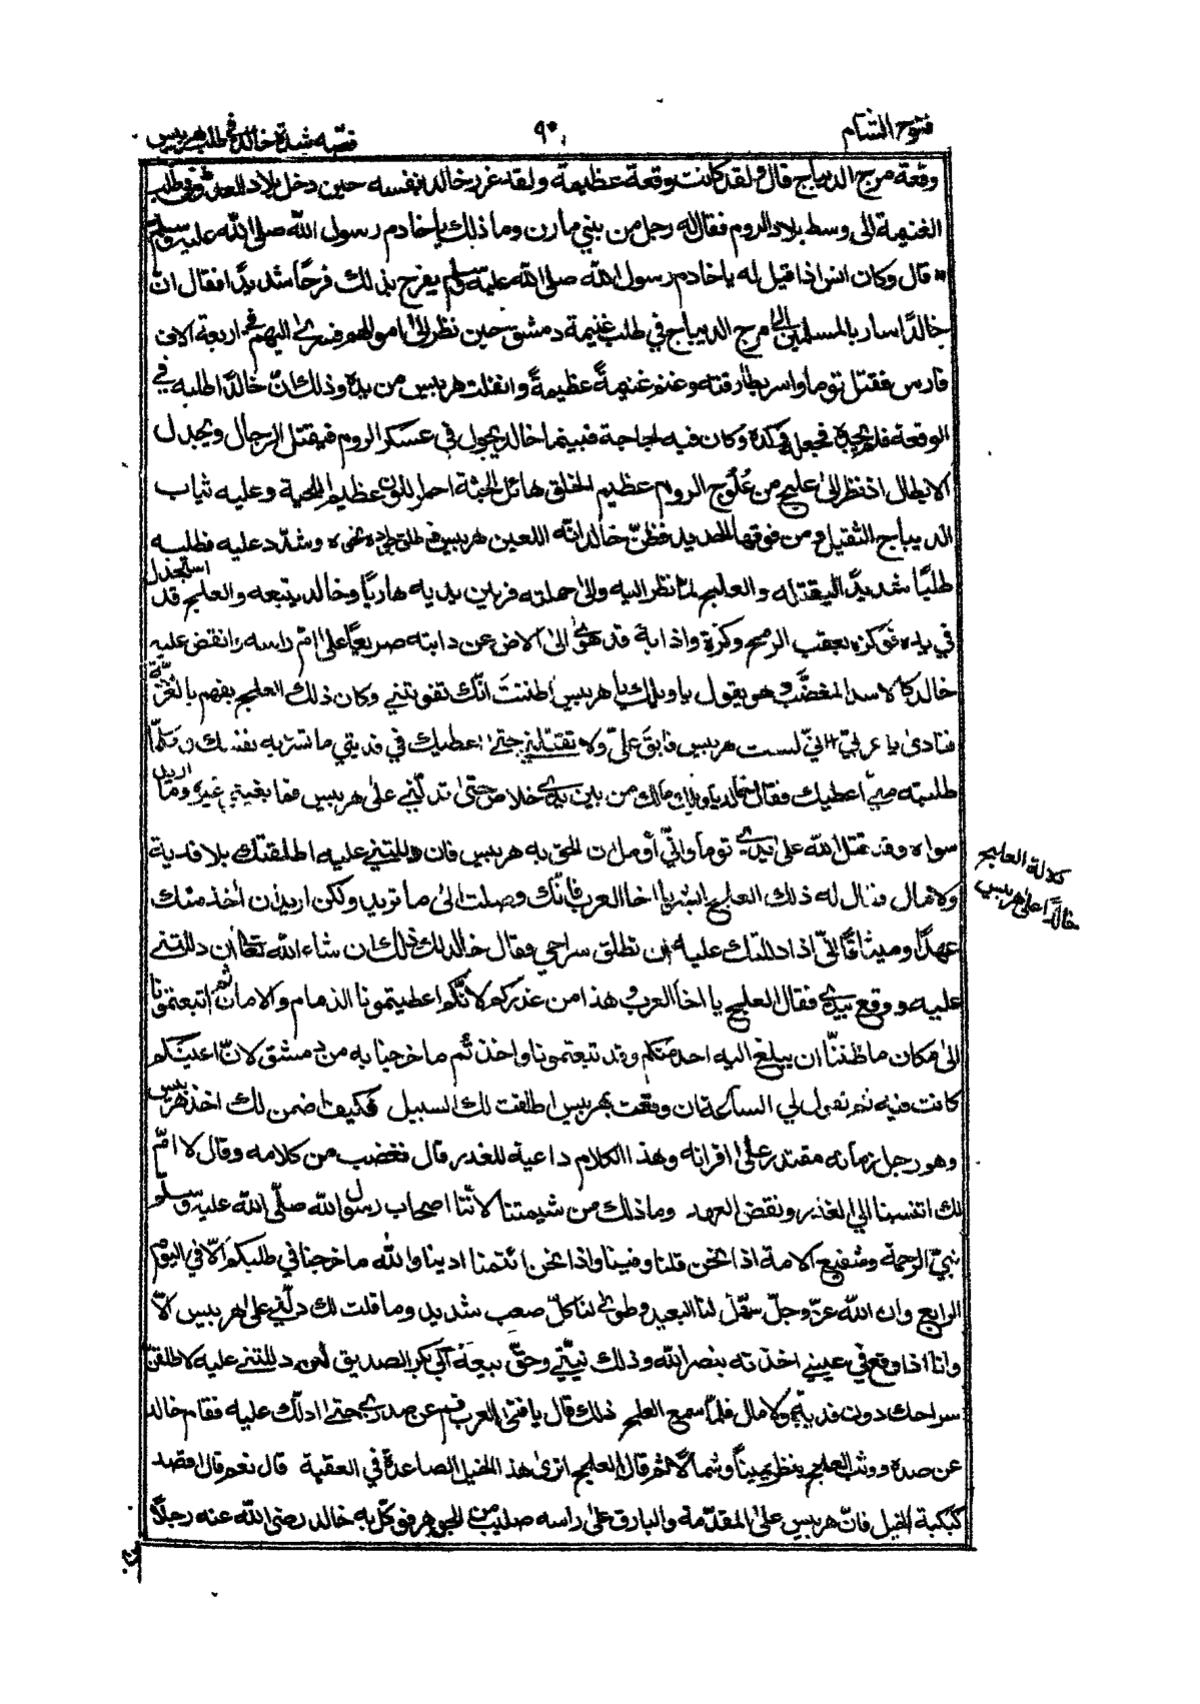 فتوح الشام
٩٠
قصّة شدة خالد في طلب هربيس
وقعة مرج الديباج قال و لقد كانت وقعة عظيمة ولقد غرر خالد بنفسه حين دخل بلاد العدو في طلب
الغنيمة الى وسط بلاد الروم فقال له رجل من بني مازن وما ذلك يا خادم رسول الله صلى الله عليه وسلم
* قال وكان انس اذا قيل له يا خادم رسول الله صلى الله عليه وسلم يفرح بذلك فرحًا شديدًا فقال انّ
خالدًا سار بالمسلمين الى مرج الديباج في طلب غنيمة دمشق حين نظر الى اموالهم فسرى اليهم في اربعة الاف
فارس فقتل توما واسر بطارقته وغنم غنيمةً عظيمةً وانفلت هربيس من يده وذلك انّ خالدًا طلبه في
الوقعة فلم يجده فجعل في كدة وكان فيه لجاجة فبينما خالد يجول في عسكر الروم فيقتل الرجال ويجدل
الابطال اذ نظر الى علج من عُلُوج الروم عظيم الخلق هائل الجثة احمر اللون عظيم اللحية وعليه ثياب
الديباج الثقيل ومن فوقها الحديد فظنّ خالد انّه اللعين هربيس فاطلق جواده نحوه وشدّد عليه فطلبه
طلبًا شديدًا ليقتله والعلج لمّا نظر اليه والى حملته فر بين يديه هاربًا وخالد يتبعه والعلج قد استجذل
في يده فوكزه بعقب الرمح وكزة واذا به قد هوى الى الارض عن دابته صريعًا على امّ راسه وانقض عليه
خالد كالاسد المغضَب وهو يقول يا ويلك يا هربيس اظننتَ انّك تفوتني وكان ذلك العلج يفهم بالعربيّة
فنادى يا عربيّ انّي لست هربيس فابقَ عليّ ولا تقتلني حتى اعطيك في فديتي ما تسرّ به نفسك وكلّما
طلبته منّي اعطيك فقال خالد يا ويلك مالك من بين يدي خلاص حتى تدلّني على هربيس فما بغيتي غيره وما اريد
سواه وقد قتل الله على يدي توما وانّي أومل ان الحق به هربيس فان دللتني عليه اطلقتك بلا فدية
ولا مال فقال له ذلك العلج ابشر يا اخا العرب فانّك وصلت الى ما تريد ولكن اريد ان اخذ منك
عهدًا وميثاقًا انّي اذا دللتك عليه ان تطلق سراحي فقال خالد لك ذلك ان شاء الله تعالى ان دللتني
عليه ووقع بيدي فقال العلج يا اخا العرب وهذا من غدركم لانّكم اعطيتمونا الذمام والامان ثم اتبعتمونا
الى مكان ما ظننّا ان يبلغ اليه احد منكم وقد تبعتمونا واخذتم ما خرجنا به من دمشق لانّ اعينكم
كانت فيه ثم تقول لي الساعة ان وقعت بهربيس اطلقت لك السبيل فكيف اضمن لك اخذ هربيس
وهو رجل زمانه مقتدر على اقرانه وهذا الكلام داعية للغدر قال فغضب من كلامه وقال لا امّ
لك اتنسبنا الى الغدر ونقض العهد وما ذلك من شيمتنا لانّنا اصحاب رسول الله صلّى الله عليه وسلّم
نبيّ الرحمة وشفيع الامة اذا نحن قلنا وفينا واذا نحن ائتمنا ادينا والله ما خرجنا في طلبكم الّا في اليوم
الرابع وان الله عزّ وجلّ سهّل لنا البعيد وطوى لنا كلّ صعب شديد وما قلت لك دلّني على هربيس لا
وانا اذا وقع في عيني اخذته بنصر الله وذلك نيّتي وحقّ بيعة ابي بكر الصديق لئن دللتني عليه لاطلقنّ
سراحك دون فدية ولا مال فلمّا سمع العلج ذلك قال يا فتى العرب قم عن صدري حتى ادلّك عليه فقام خالد
عن صدره ووثب العلج ينظر يمينًا وشمالًا ثم قال العلج اترى هذا الخيل الصاعدة في العقبة قال نعم قال اقصد
كبكبة الخيل فانّ هربيس على المقدّمة والبارق على راسه صليب من الجوهر فوكّل به خالد رضى الله عنه رجلًا
دلالة العلج
خالدًا على هربيس